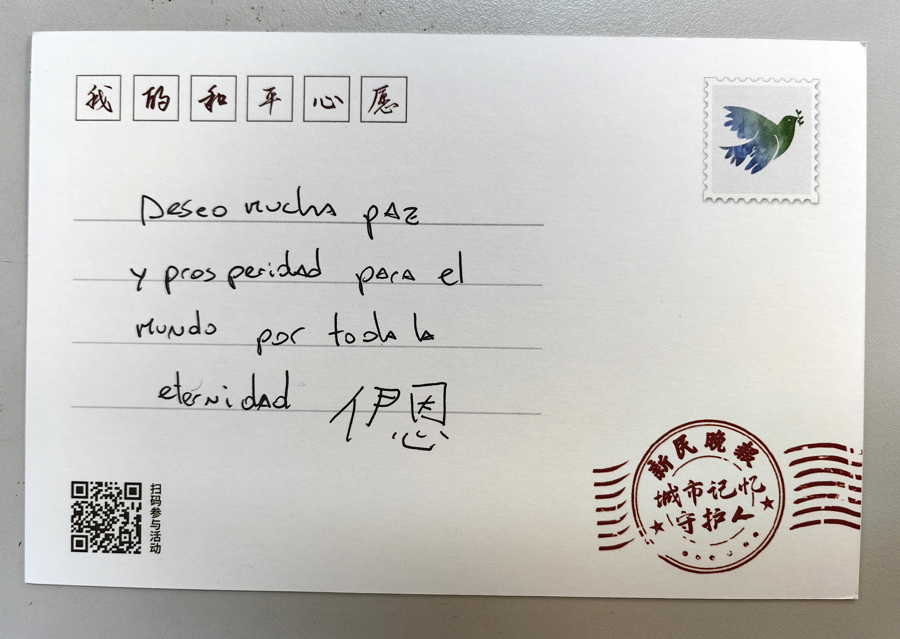 我的和平心愿
Deseo mucha paz
y prosperidad para el
mundo por toda la
eternidad 伊恩
扫码参与活动
新民晚报
城市记忆
守护人